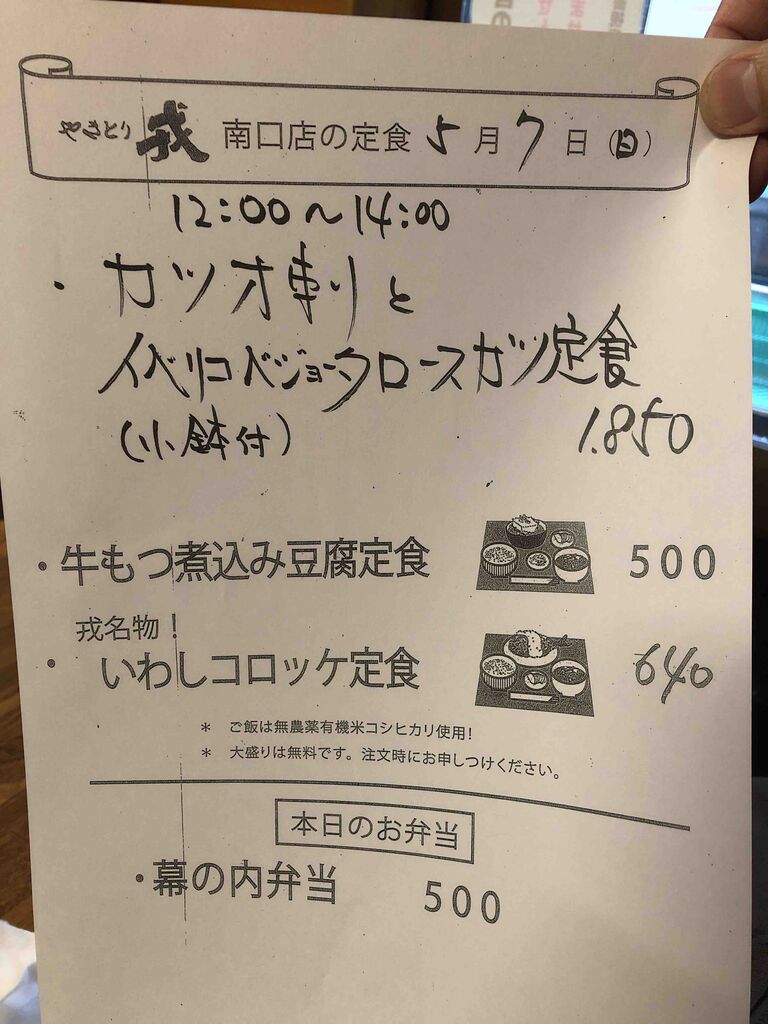 やきとり 戎 南口店の定食 5月7日(日)
12:00〜14:00
・カツオ刺と
イベリコベジョータロースカツ定食
(小鉢付) 1.850
・牛もつ煮込み豆腐定食 500
戎名物!
・いわしコロッケ定食 640
* ご飯は無農薬有機米コシヒカリ使用!
* 大盛りは無料です。注文時にお申しつけください。
本日のお弁当
・幕の内弁当 500